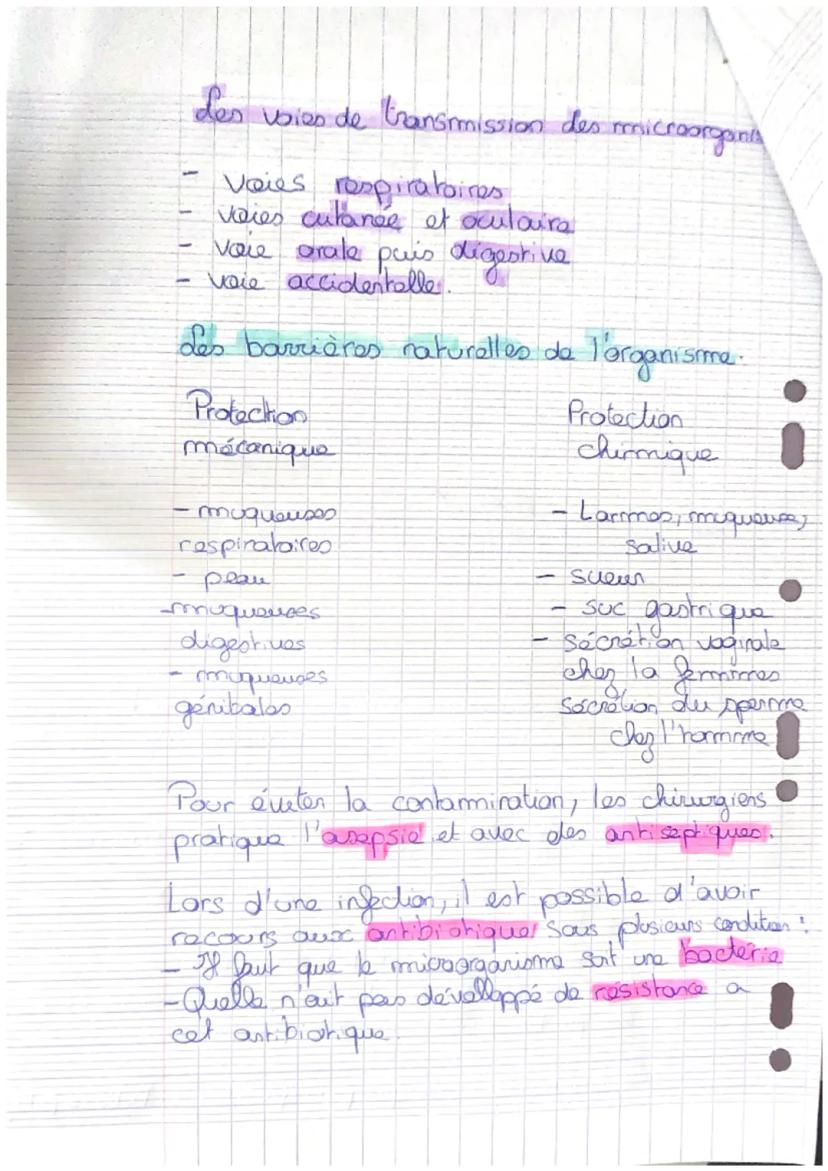 Les voies de transmission des microorganis
- Voies respiratoires
- voies cutanée et oculaire
- voie orale puis digestive
- voie accidentelle.
Les barrières naturelles de l'organisme.
Protection
mécanique
- muqueuses
respiratoires
- peau
- muqueuses
digestives
- muqueuses
génitales
Protection
chimique
- Larmes, muqueuse,
salive
- sueur
- suc gastrique
- sécrétion vaginale
chez la femmes
sécrétion du sperme
chez l'homme
Pour éviter la contamination, les chirurgiens
pratique l'asepsie et avec des antiseptiques.
Lors d'une infection, il est possible d'avoir
recours aux antibiotique sous plusieurs condition :
- Il faut que le microorganisme soit une bactérie
- Quelle n'ait pas dévelloppé de résistance a
cet antibiotique.